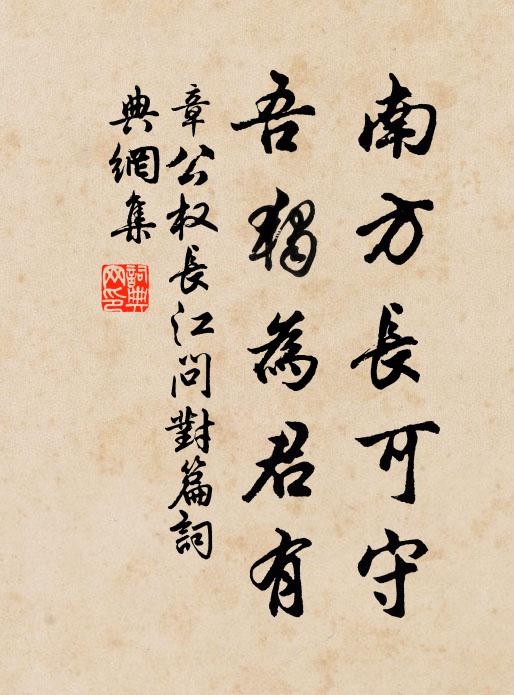 南方長可守
吾獨為君有
章公权長江問對篇詞
典網集
詞典
网印